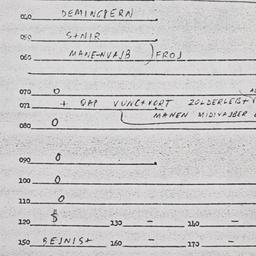 040 DEMINCPERN
050 S+NIR
060 MANENVAJB )FROJ
070 0
071 + DAP VUNC+KORT ZOLDERLEB+ V
MANEN MIDIVAJBER
080 0
090 0
100 0
110 0
120 130 - 140 -
150 BEJNIS+ 160 - 170 -